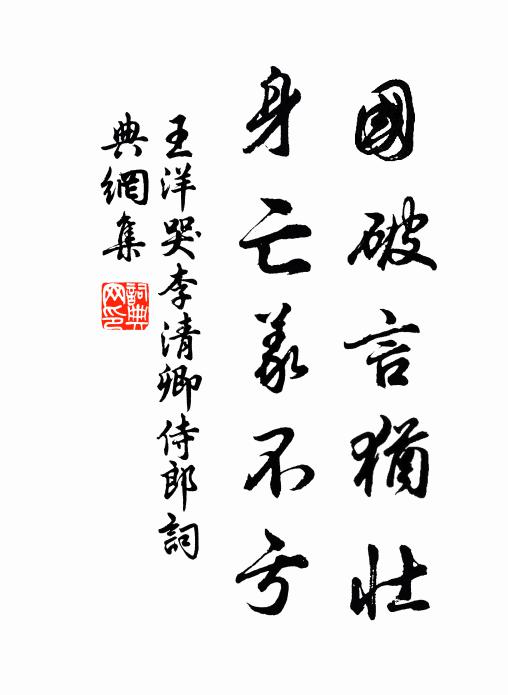 國破言猶壯
身亡義不亏
王洋哭李清卿侍郎詞
典網集
詞典
网印